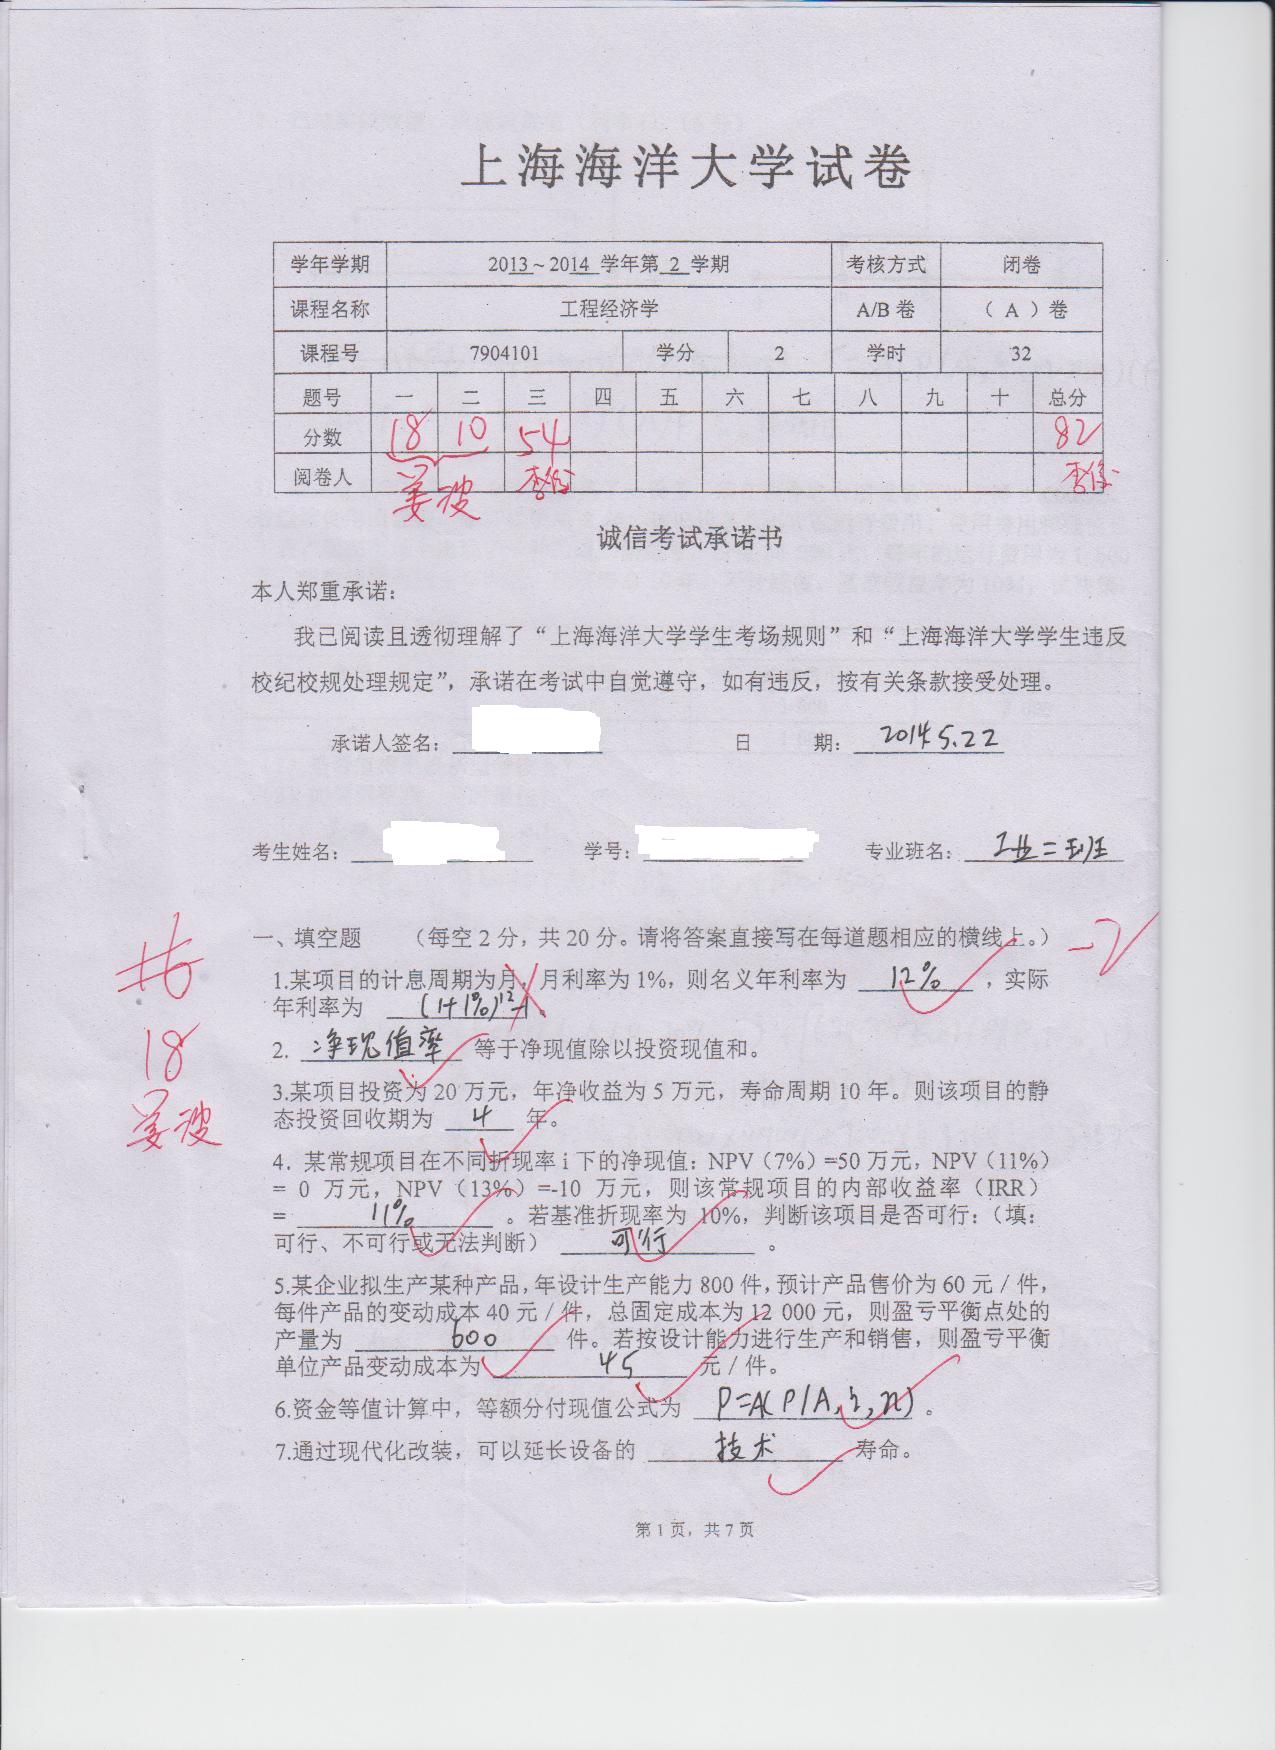 上海海洋大学试卷
学年学期 2013～2014 学年第 2 学期 考核方式 闭卷
课程名称 工程经济学 A/B 卷 （ A ）卷
课程号 7904101 学分 2 学时 32
题号 一 二 三 四 五 六 七 八 九 十 总分
分数 18 10 54 82
阅卷人 姜波
诚信考试承诺书
本人郑重承诺：
我已阅读且透彻理解了“上海海洋大学学生考场规则”和“上海海洋大学学生违反
校纪校规处理规定”，承诺在考试中自觉遵守，如有违反，按有关条款接受处理。
承诺人签名： 日 期：2014 5.22
考生姓名： 学号： 专业班名：工业二班
一、填空题 （每空 2 分，共 20 分。请将答案直接写在每道题相应的横线上。） -2
1.某项目的计息周期为月，月利率为 1%，则名义年利率为 12% ，实际
年利率为 (1+1%)¹²-1 。
2. 净现值率 等于净现值除以投资现值和。
18
3.某项目投资为 20 万元，年净收益为 5 万元，寿命周期 10 年。则该项目的静
态投资回收期为 4 年。
姜波
4．某常规项目在不同折现率 i 下的净现值：NPV（7%）=50 万元，NPV（11%）
= 0 万元，NPV（13%）=-10 万元，则该常规项目的内部收益率（IRR）
= 11% 。若基准折现率为 10%，判断该项目是否可行：（填：
可行、不可行或无法判断） 可行 。
5.某企业拟生产某种产品，年设计生产能力 800 件，预计产品售价为 60 元 / 件，
每件产品的变动成本 40 元 / 件，总固定成本为 12 000 元，则盈亏平衡点处的
产量为 600 件。若按设计能力进行生产和销售，则盈亏平衡
单位产品变动成本为 45 元 / 件。
6.资金等值计算中，等额分付现值公式为 P=A(P/A,i,n) 。
7.通过现代化改装，可以延长设备的 技术 寿命。
第 1 页，共 7 页